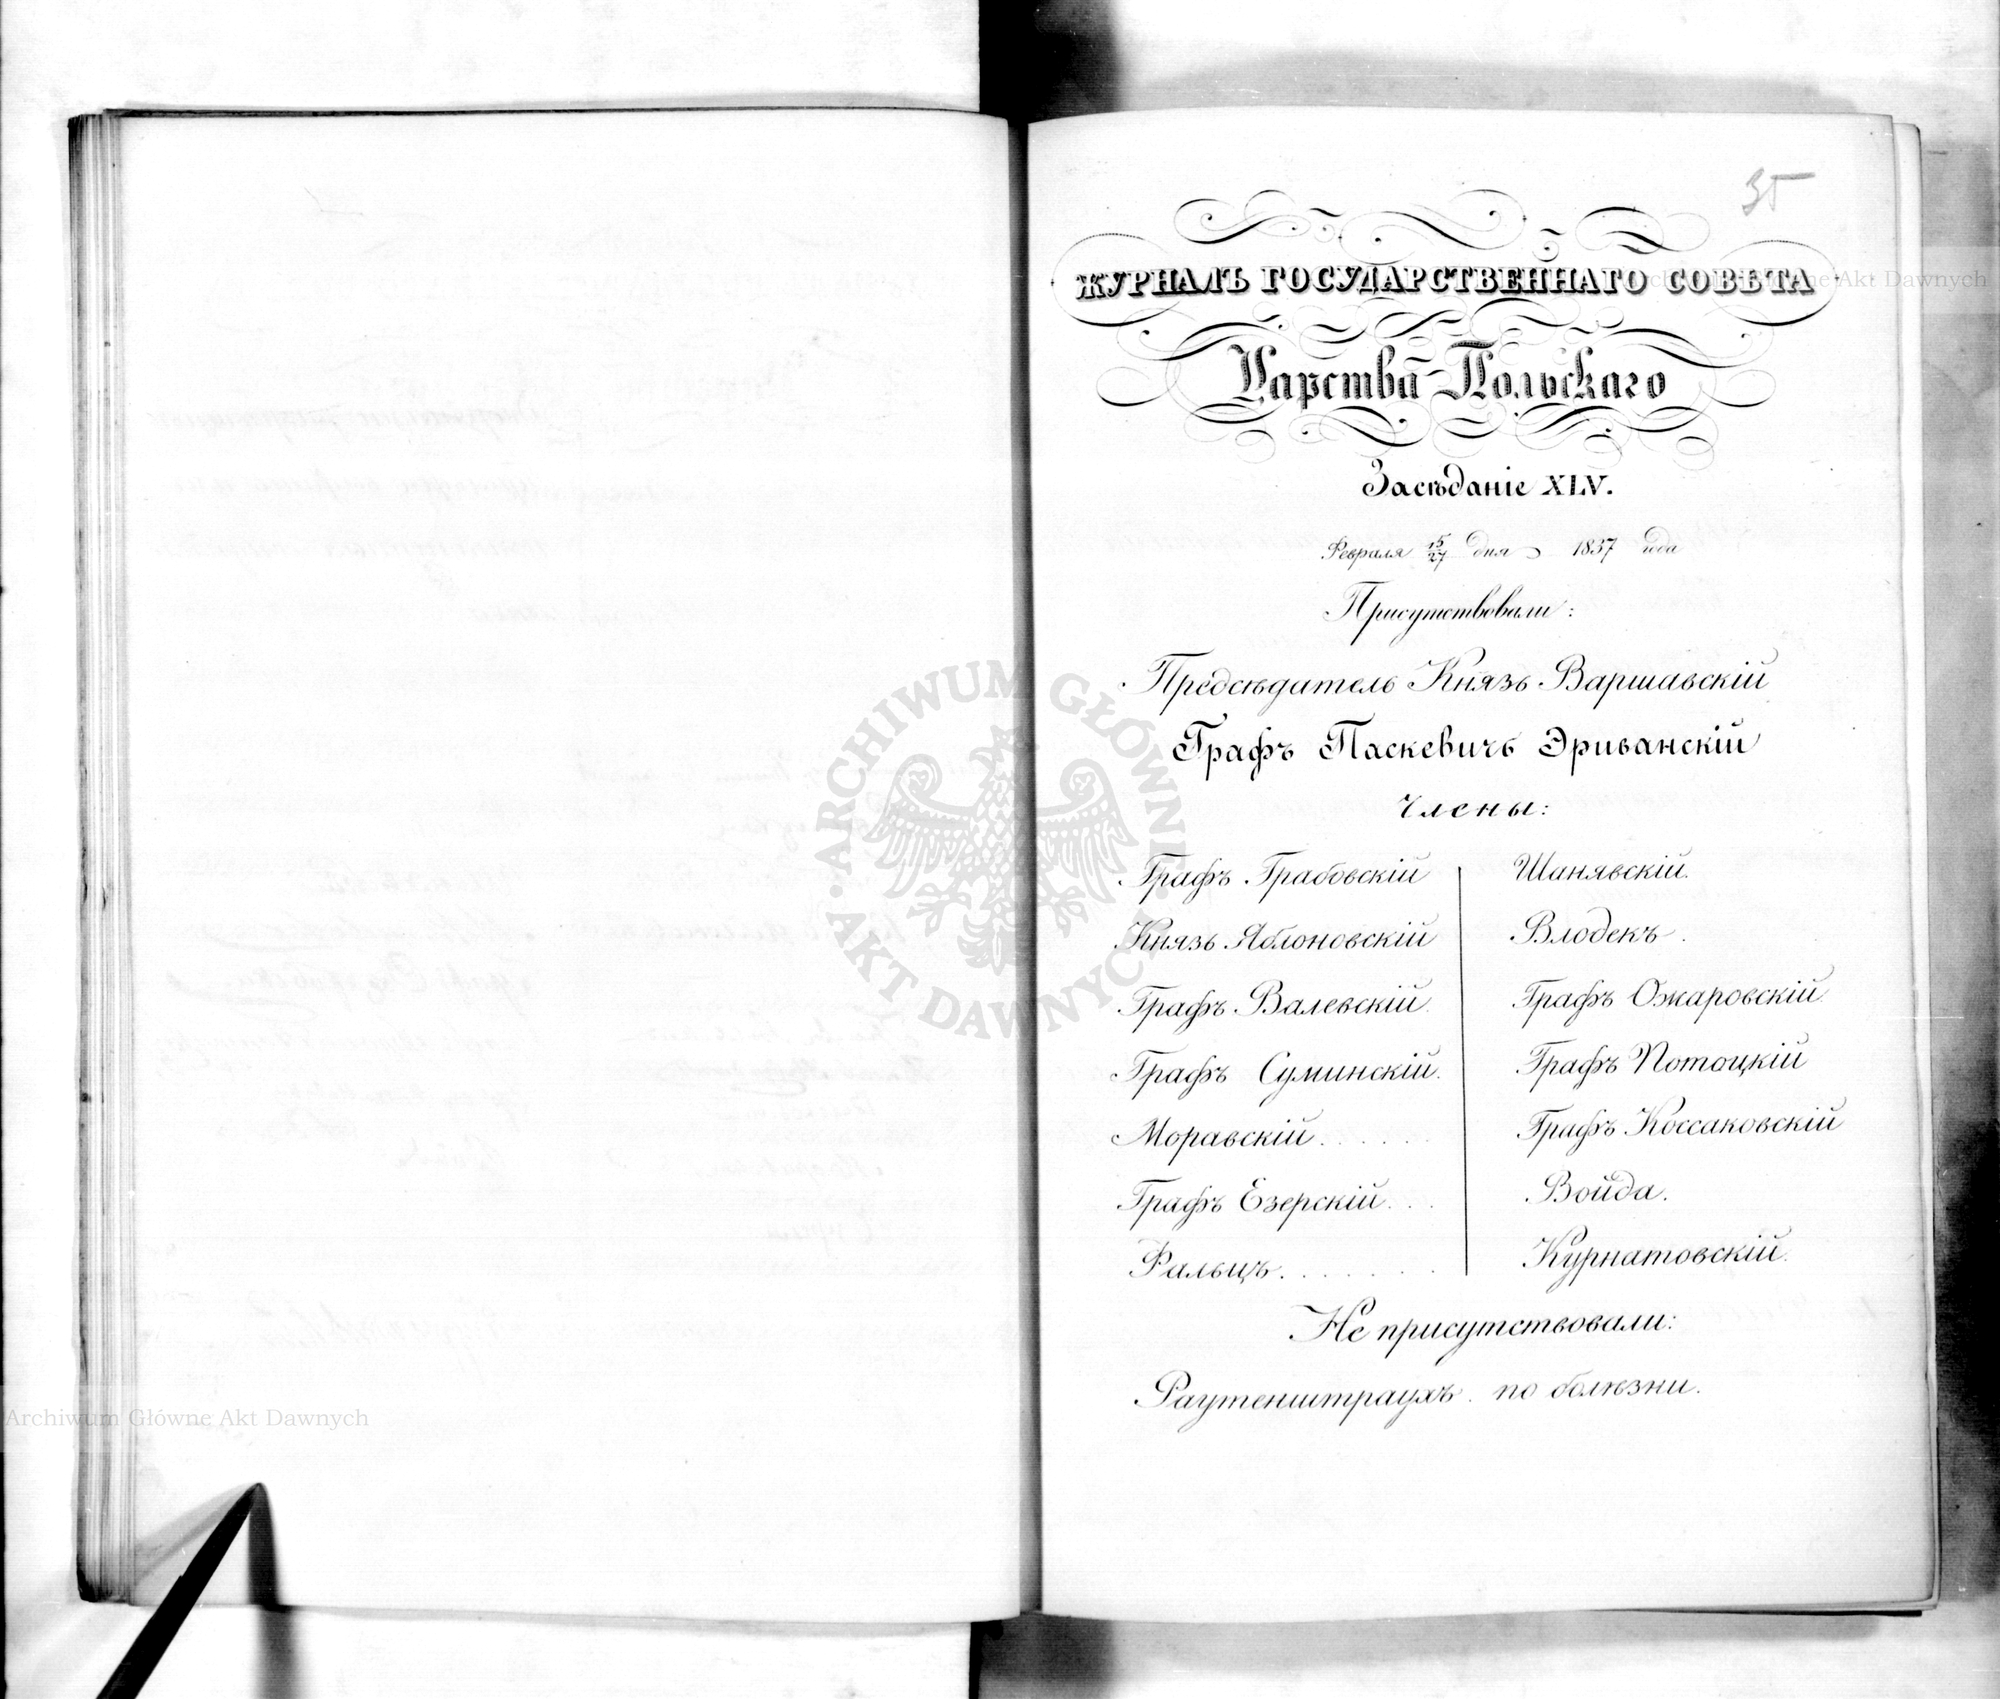 35
ЖУРНАЛЪ ГОСУДАРСТВЕННАГО СОВѢТА
Царства Польскаго
Засѣданіе XLV.
Февраля 15/27 дня 1837 года
Присутствовали:
Предсѣдатель Князь Варшавскій
Графъ Паскевичъ Эриванскій
Члены:
Графъ Грабовскій
Князь Яблоновскій
Графъ Валевскій.
Графъ Суминскій.
Моравскій . . . . . .
Графъ Езерскій. . .
Фальцъ. . . . . . .
Шанявскій.
Влодекъ.
Графъ Ожаровскій.
Графъ Потоцкій
Графъ Коссаковскій
Войда.
Курнатовскій.
Не присутствовали:
Раутенштраухъ. по болѣзни.
Archiwum Główne Akt Dawnych
ARCHIWUM GŁÓWNE
AKT DAWNYCH
Archiwum Główne Akt Dawnych